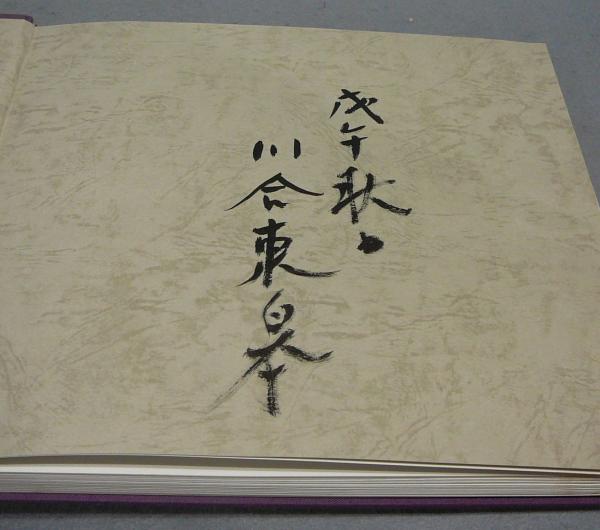 戊午秋
川合東皐